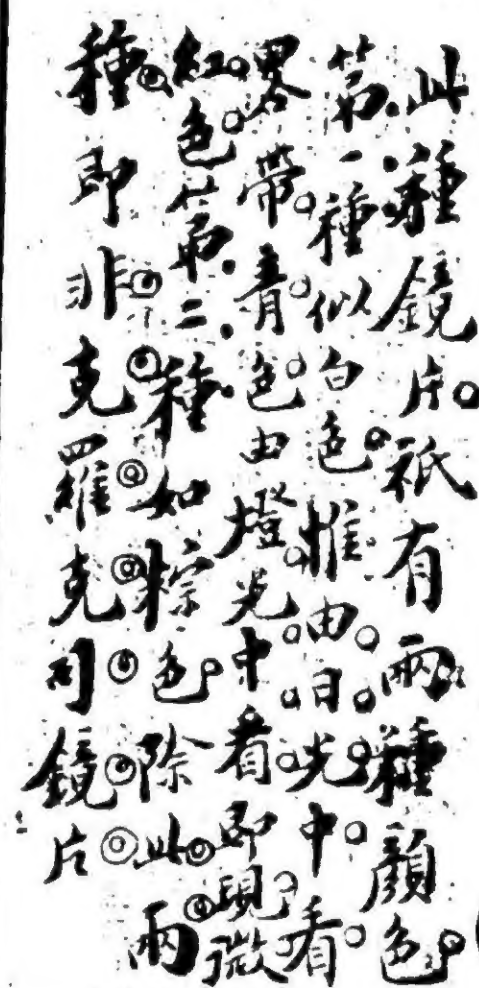 此種鏡片。祇有兩種顏色。
第一種似白色。惟由日光中看。
畧帶青色。由燈光中看。即現微
紅色。第二種如棕色。除此兩
種即非克羅克司鏡片